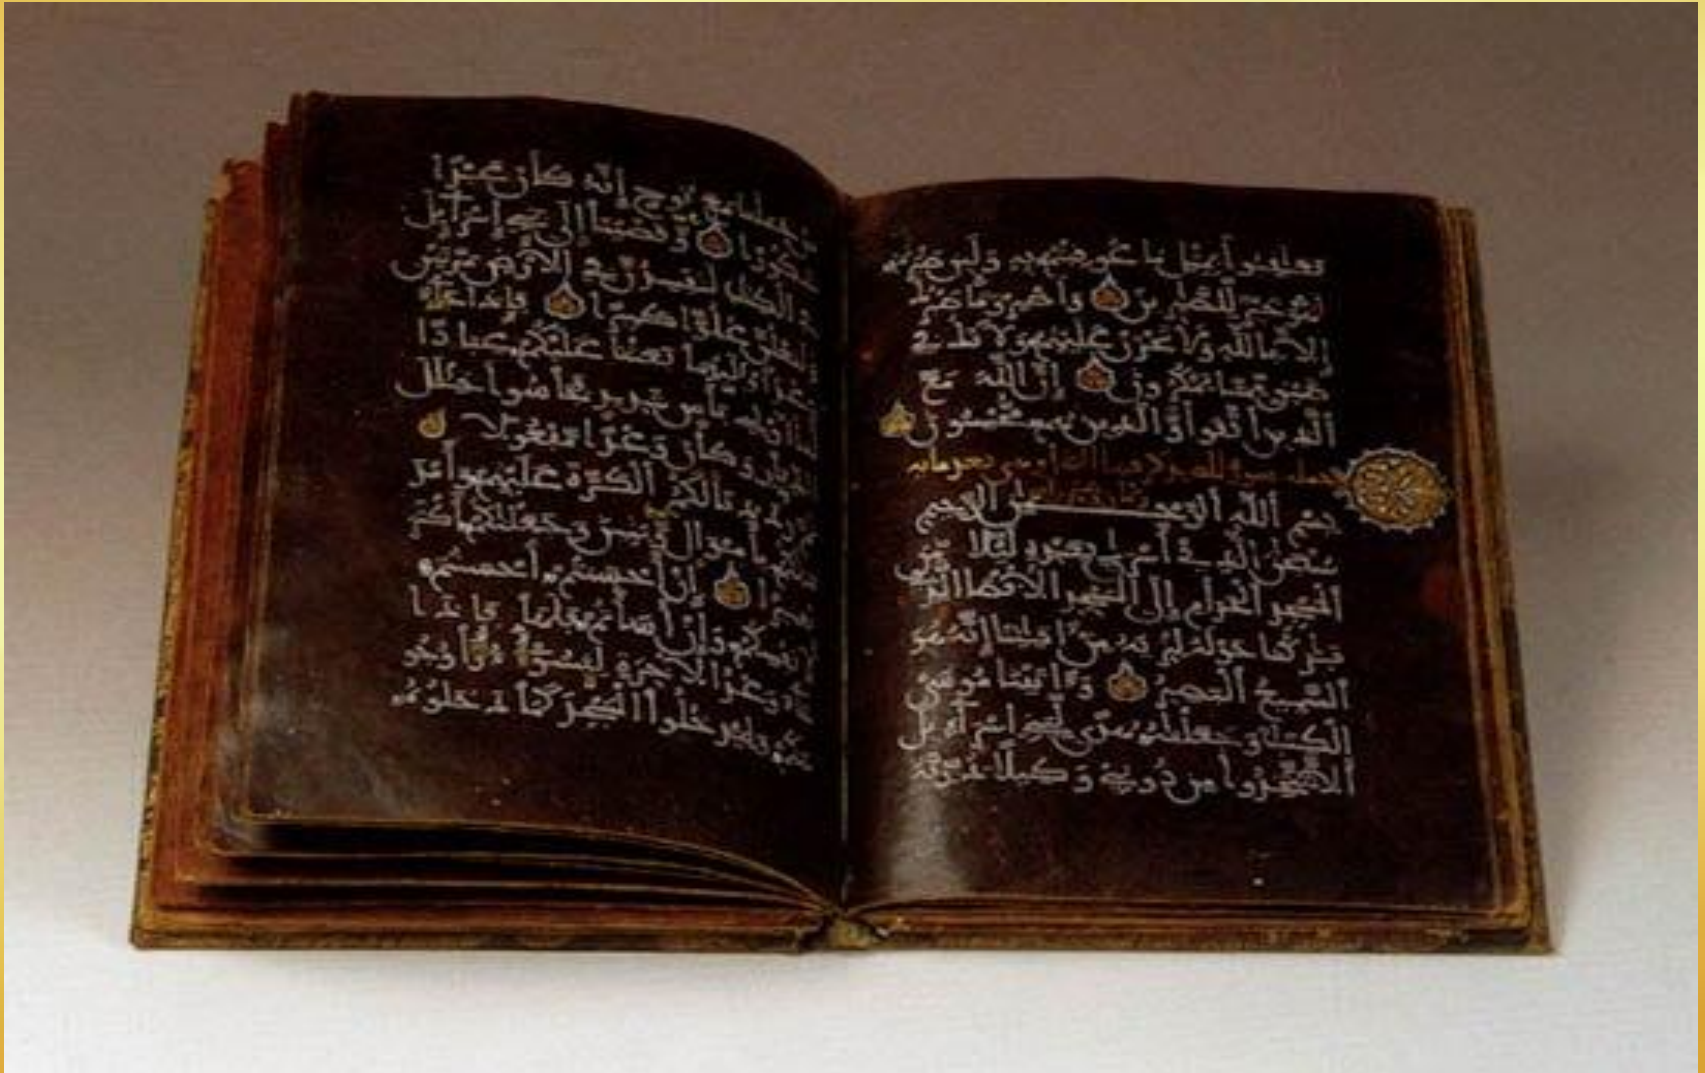 فعاقبوا بمثل ما عوقبتم به ولئن صبرتم
لهو خير للصبرين واصبر وما صبرك
إلا بالله ولا تحزن عليهم ولا تك في
ضيق مما يمكرون إن الله مع
الذين اتقوا والذين هم محسنون
بسم الله الرحمن الرحيم
سبحن الذي أسرى بعبده ليلا من
المسجد الحرام إلى المسجد الأقصا الذي
بركنا حوله لنريه من ءايتنا إنه هو
السميع البصير وءاتينا موسى
الكتب وجعلنه هدى لبني إسرائيل
ألا تتخذوا من دوني وكيلا ذرية
من حملنا مع نوح إنه كان عبدا
شكورا وقضينا إلى بني إسرائيل
في الكتب لتفسدن في الأرض مرتين
ولتعلن علوا كبيرا فإذا جاء
وعد أوليهما بعثنا عليكم عبادا
لنا أولي بأس شديد فجاسوا خلل
الديار وكان وعدا مفعولا
ثم رددنا لكم الكرة عليهم وأمد
دنكم بأموال وبنين وجعلنكم أكثر
نفيرا إن أحسنتم أحسنتم
لأنفسكم وإن أسأتم فلها فإذا
جاء وعد الأخرة ليسوءوا وجو
هكم وليدخلوا المسجد كما دخلوه